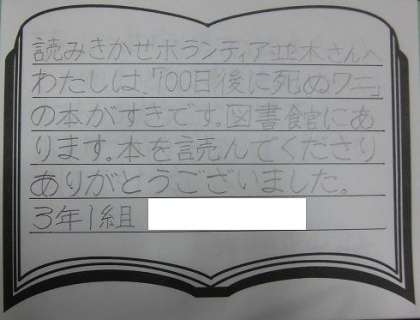 読みきかせボランティア並木さんへ
わたしは、「100日後に死ぬワニ」
の本がすきです。図書館にあ
ります。本を読んでくださり
ありがとうございました。
3年1組